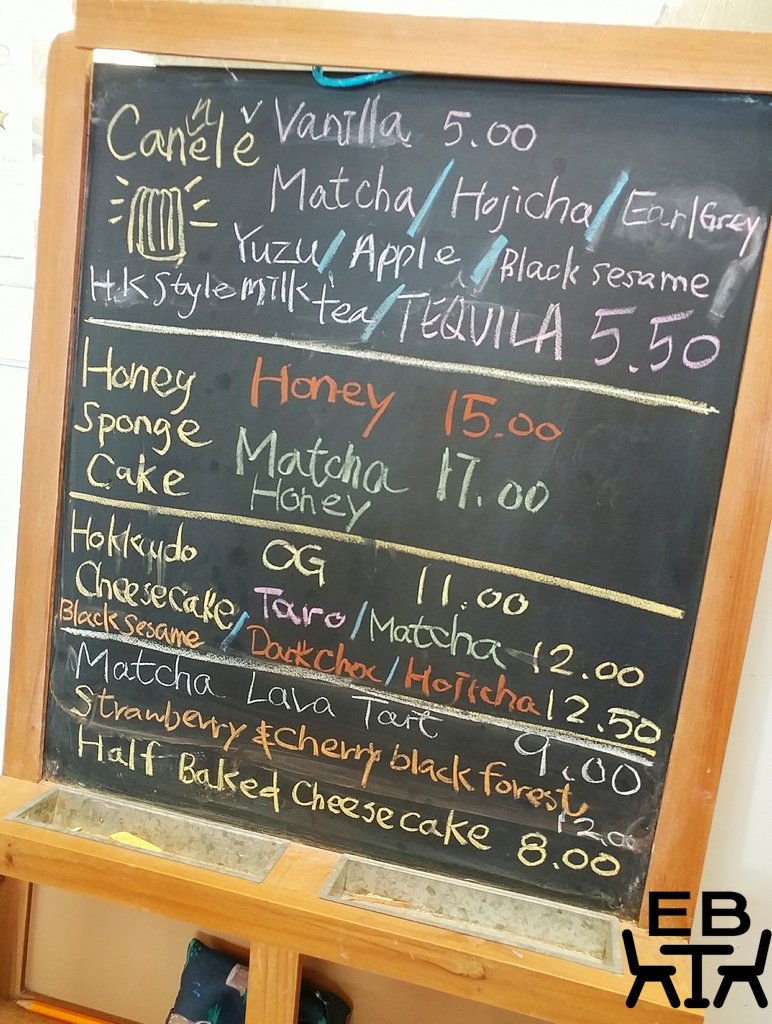 Canelé Vanilla 5.00
Matcha / Hojicha / Earl Grey
Yuzu / Apple / Black sesame
H.K Style milk tea / TEQUILA 5.50
Honey Sponge Cake
Honey 15.00
Matcha Honey 17.00
Hokkudo Cheesecake
OG 11.00
Taro / Matcha 12.00
Black Sesame / Dark choc / Hojicha 12.50
Matcha Lava Tart 9.00
Strawberry & Cherry black forest 12.00
Half Baked Cheesecake 8.00
EB